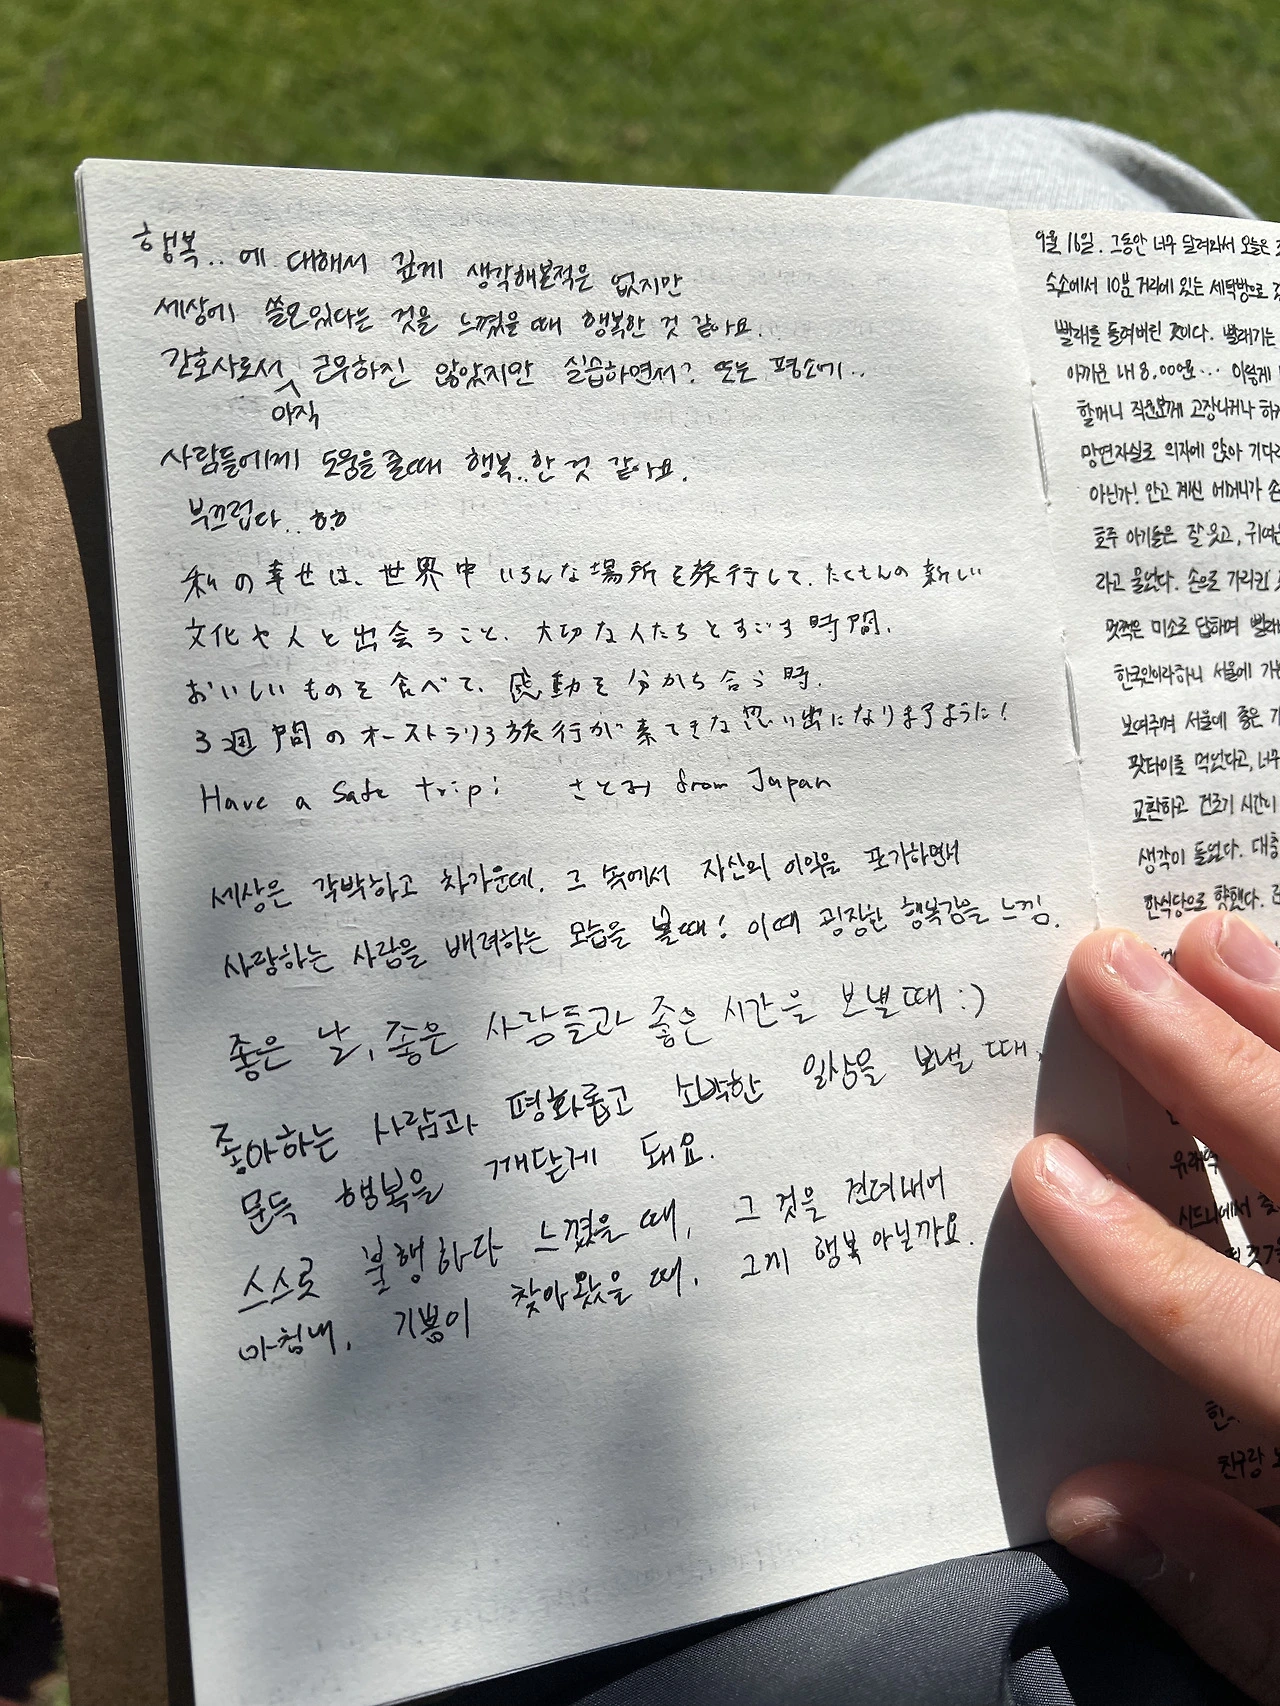 행복.. 에 대해서 깊게 생각해본적은 없지만
세상에 쓸모있다는 것을 느꼈을 때 행복한 것 같아요.
간호사로서 아직 근무하진 않았지만 실습하면서? 또는 평소에..
사람들에게 도움을 줄때 행복..한 것 같아요.
부끄럽다.. ㅎㅎ
私の幸せは、世界中いろんな場所を旅行して、たくさんの新しい
文化や人と出会うこと、大切な人たちとすごす時間。
おいしいものを食べて、感動を分かち合う時。
3週間のオーストラリア旅行が素てきな思い出になりますように!
Have a safe trip! さとみ from Japan
세상은 각박하고 차가운데, 그 속에서 자신의 이익을 포기하면서
사랑하는 사람을 배려하는 모습을 볼때! 이때 굉장한 행복감을 느낌.
좋은 날, 좋은 사람들과 좋은 시간을 보낼 때 :)
좋아하는 사람과 평화롭고 소박한 일상을 보낼 때,
문득 행복을 깨닫게 돼요.
스스로 불행하다 느꼈을 때, 그 것을 견뎌내어
마침내, 기쁨이 찾아왔을 때, 그게 행복 아닐까요.
9월 16일. 그동안 너무 달려와서 오늘은
숙소에서 10분 거리에 있는 세탁방으로
빨래를 돌려버린 것이다. 빨래기는
아까운 내 8,000원… 이렇게
할머니 직원분께 고장나거나
망연자실로 의자에 앉아 기다
아닌가! 안고 계신 어머니가 손
호주 아기들은 잘 웃고, 귀여운
라고 물었다. 손으로 가리킨
멋쩍은 미소로 답하며 빨래
한국인이라하니 서울에 가
보여주며 서울에 좋은
팟타이를 먹었다고, 너무
교환하고 건조기 시간이
생각이 들었다. 대충
한식당으로 향했다.
유래역
시드니에서
친구랑